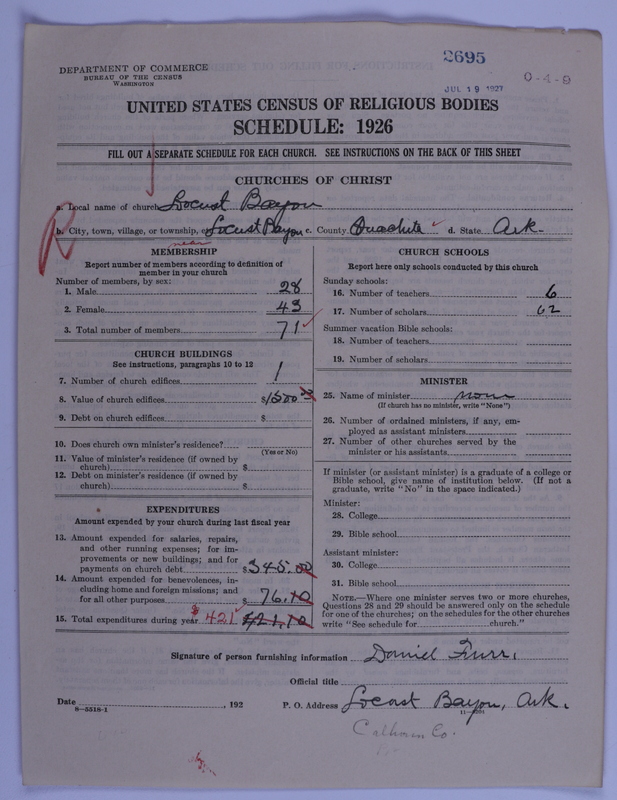 2695
DEPARTMENT OF COMMERCE
BUREAU OF THE CENSUS
WASHINGTON
0-4-9
JUL 19 1927
UNITED STATES CENSUS OF RELIGIOUS BODIES
SCHEDULE: 1926
FILL OUT A SEPARATE SCHEDULE FOR EACH CHURCH. SEE INSTRUCTIONS ON THE BACK OF THIS SHEET
CHURCHES OF CHRIST
a. Local name of church Locust Bayou
R
b. City, town, village, or township, or Locust Bayou c. County Ouachita d. State Ark.
near
MEMBERSHIP
Report number of members according to definition of
member in your church
Number of members, by sex:
1. Male 28
2. Female 43
3. Total number of members 71
CHURCH BUILDINGS
See instructions, paragraphs 10 to 12
7. Number of church edifices 1
8. Value of church edifices $1500.00
9. Debt on church edifices $
10. Does church own minister's residence?
(Yes or No)
11. Value of minister's residence (if owned by
church) $
12. Debt on minister's residence (if owned by
church) $
EXPENDITURES
Amount expended by your church during last fiscal year
13. Amount expended for salaries, repairs,
and other running expenses; for im-
provements or new buildings; and for
payments on church debt $345.00
14. Amount expended for benevolences, in-
cluding home and foreign missions; and
for all other purposes $ 76.10
15. Total expenditures during year $421 $421.10
CHURCH SCHOOLS
Report here only schools conducted by this church
Sunday schools:
16. Number of teachers 6
17. Number of scholars 62
Summer vacation Bible schools:
18. Number of teachers
19. Number of scholars
MINISTER
25. Name of minister none
(If church has no minister, write "None")
26. Number of ordained ministers, if any, em-
ployed as assistant ministers
27. Number of other churches served by the
minister or his assistants
If minister (or assistant minister) is a graduate of a college or
Bible school, give name of institution below. (If not a
graduate, write "No" in the space indicated.)
Minister:
28. College
29. Bible school
Assistant minister:
30. College
31. Bible school
NOTE.—Where one minister serves two or more churches,
Questions 28 and 29 should be answered only on the schedule
for one of the churches; on the schedules for the other churches
write "See schedule for church."
Signature of person furnishing information Daniel Furr.
Official title
Date , 192 P. O. Address Locust Bayou, Ark.
8—5518-1
Calhoun Co.